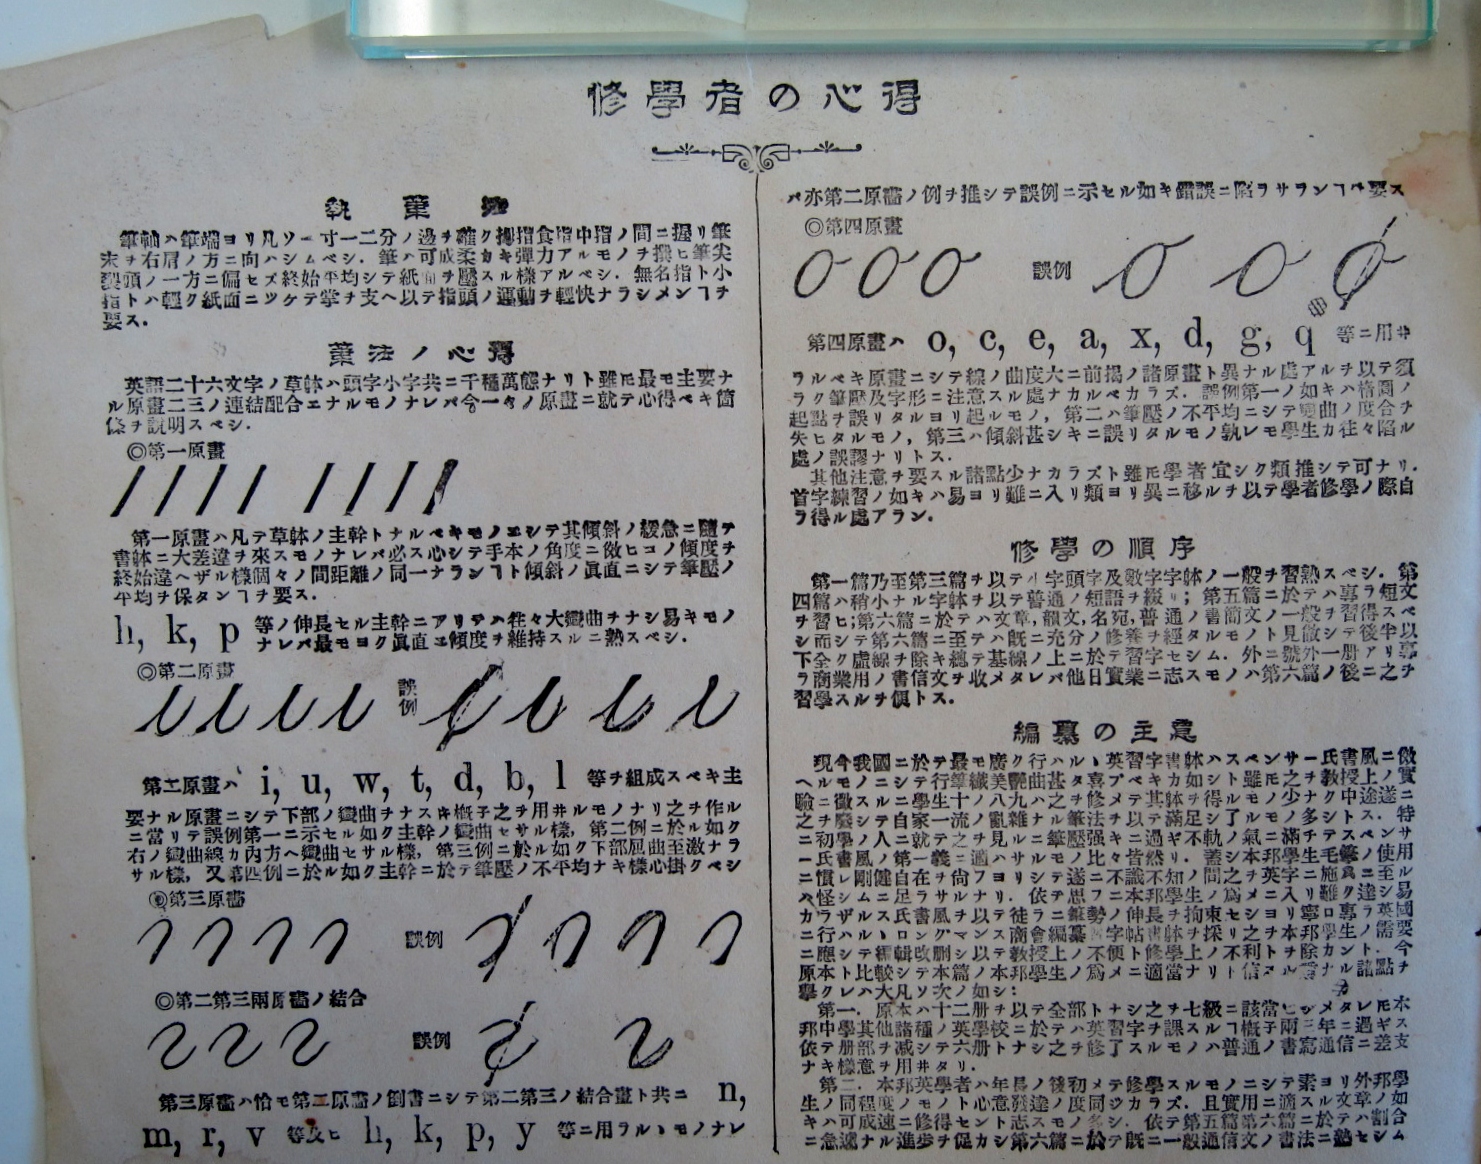 修學者の心得
執筆法
筆軸ハ筆端ヨリ凡ソ一寸一二分ノ邊チ確ク拇指食指中指ノ間ニ握リ筆
末チ右肩ノ方ニ向ハシムベシ. 筆ハ可成柔カキ彈力アルモノチ撰ヒ筆尖
裂頭ノ一方ニ偏セズ終始平均シテ紙面チ壓スル樣アルベシ. 無名指ト小
指トハ輕ク紙面ニツケテ掌チ支ヘ以テ指頭ノ運動チ輕快ナラシメンヿチ
要ス.
筆法ノ心得
英語二十六文字ノ草躰ハ頭字小字共ニ千種萬態ナリト雖𪜈最モ主要ナ
ル原畫二三ノ連結配合ニナルモノナレバ今一々ノ原畫ニ就テ心得ベキ箇
條チ說明スベシ.
◎第一原畫
第一原畫ハ凡テ草躰ノ主幹トナルベキモノニシテ其傾斜ノ緩急ニ隨テ
書躰ニ大差違チ來スモノナレバ必ス心シテ手本ノ角度ニ倣ヒコノ傾度チ
終始違ヘザル樣個々ノ間距離ノ同一ナランヿト傾斜ノ眞直ニシテ筆壓ノ
平均チ保タンヿチ要ス.
h, k, p 等ノ伸長セル主幹ニアリテハ往々大彎曲チナシ易キモノ
ナレバ最モヨク眞直ニ傾度チ維持スルニ熟スベシ.
◎第二原畫
誤例
第二原畫ハ i, u, w, t, d, b, l 等チ組成スベキ主
要ナル原畫ニシテ下部ノ彎曲チナスキ槪子之チ用井ルモノナリ之チ作ル
ニ當リテ誤例第一ニ示セル如ク主幹ノ彎曲セサル樣, 第二例ニ於ル如ク
右ノ彎曲線カ內方ヘ彎曲セサル樣, 第三例ニ於ル如ク下部屈曲至激ナラ
サル樣, 又第四例ニ於ル如ク主幹ニ於テ筆壓ノ不平均ナキ樣心掛クベシ
◎第三原畫
誤例
◎第二第三兩原畫ノ結合
誤例
第三原畫ハ恰モ第二原畫ノ倒書ニシテ第二第三ノ結合畫ト共ニ n,
m, r, v 等及ヒ h, k, p, y 等ニ用ラルヽモノナレ
バ亦第二原畫ノ例チ推シテ誤例ニ示セル如キ錯誤ニ陷ラサランヿヘ要ス
◎第四原畫
誤例
第四原畫ハ o, c, e, a, x, d, g, q 等ニ用井
ラルベキ原畫ニシテ線ノ曲度大ニ前揭ノ諸原畫ト異ナル處アルチ以テ須
ラク筆壓及字形ニ注意スル處ナカルベカラズ. 誤例第一ノ如キハ楕圓ノ
起點チ誤リタルヨリ起ルモノ, 第二ハ筆壓ノ不平均ニシテ彎曲ノ度合チ
失ヒタルモノ, 第三ハ傾斜甚シキニ誤リタルモノ孰レモ學生カ往々陷ル
處ノ誤謬ナリトス.
其他注意チ要スル諸點少ナカラズト雖𪜈學者宜シク類推シテ可ナリ.
首字練習ノ如キハ易ヨリ難ニ入リ類ヨリ異ニ移ルチ以テ學者修學ノ際自
ラ得ル處アラン.
修學の順序
第一篇乃至第三篇チ以テ小字頭字及數字字躰ノ一般チ習熟スベシ. 第
四篇ハ稍小ナル字躰チ以テ普通ノ短語チ綴リ; 第五篇ニ於テハ專ラ短文
チ習ヒ; 第六篇ニ於テハ文章, 韻文, 名宛, 普通ノ書簡文ノ一般チ習得スベ
シ而シテ第六篇ニ至テハ旣ニ充分ノ修養チ經タルモノト見做シテ後半以
下全ク虛線チ除キ總テ基線ノ上ニ於テ習字セシム. 外ニ號外一册アリ專
ラ商業用ノ書信文チ收メタレバ他日實業ニ志スモノハ第六篇ノ後ニ之チ
習學スルチ順トス.
編纂の主意
現今我國ニ於テ最モ廣ク行ハルヽ英習字書躰ハスペンサー氏書風ニ倣
ヘルモノニシテ行筆纎美艶曲甚タ喜ブベキカ如シト雖𪜈之チ敎授上ノ實
驗ニ徵スルニ學生十ノ八九ハ之チ修メテ其躰チ得ルモノ少ナク中途遂ニ
之チ廢シテ自家一流ノ亂雜ナル筆法チ以テ滿足シ了ルモノ多シトス. 特
ニ初學ノ人ニ就テ之チ見ルニ筆壓强キニ過ギ不軌ノ氣ニ滿チテスペンサ
ー氏書風ノ第一義ニ適ハサルモノ比々皆然リ. 蓋シ本邦學生毛筆ノ使用
ニ慣レ剛健自在チ尙フヨリシテ遂ニ不識不知ノ間之チ英字ニ施爲ニ至ル
ハ怪シムニ足ラサルナリ. 依テ思フニ本邦學生ノ爲メニ入リ難ク達シ易
カラザルス氏書風チ以テ徒ラニ筆勢ノ伸長チ拘束セシヨリ寧ロ專ラ英國
ニ行ハルヽロングマンス商會編纂習字帖書躰チ採リ之チ本邦學生ノ需要
ニ應シテ編輯改刪シ以テ敎授上ノ不便ト修學上ノ不利トチ除カント. 今
原本ト比較シテ本篇ノ本邦學生ノ爲メニ適當ナリト信スル重ナル諸點チ
擧クレハ大凡ソ次ノ如シ:
第一. 原本ハ十二册チ以テ全部トナシ之チ七級ニ該當セシメタレ𪜈本
邦中學其他諸種ノ英學校ニ於テハ英習字チ課スルヿ槪子兩三年ニ過ギス
依テ册部チ減シテ六册トナシ之チ修了スルモノハ普通ノ書寫通信ニ差支
ナキ樣意チ用井タリ.
第二. 本邦英學者ハ年長ノ後初メテ修學スルモノニシテ素ヨリ外邦學
生ノ同程度ノモノト心意發達ノ度同ジカラズ. 且實用ニ適スル文章ノ如
キハ可成速ニ修得セント志スモノ多シ. 依テ第五篇第六篇ニ於テハ割合
ニ急遽ナル進步チ促カシ第六篇ニ於テ旣ニ一般通信文ノ書法ニ熟セシム